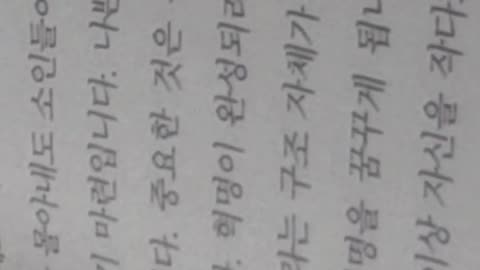 몰아내도 소인들이
기 마련입니다. 나쁜
다. 중요한 것은
. 혁명이 완성되리
라는 구조 자체가
명을 꿈꾸게 됩니
이상 자신을 작다.